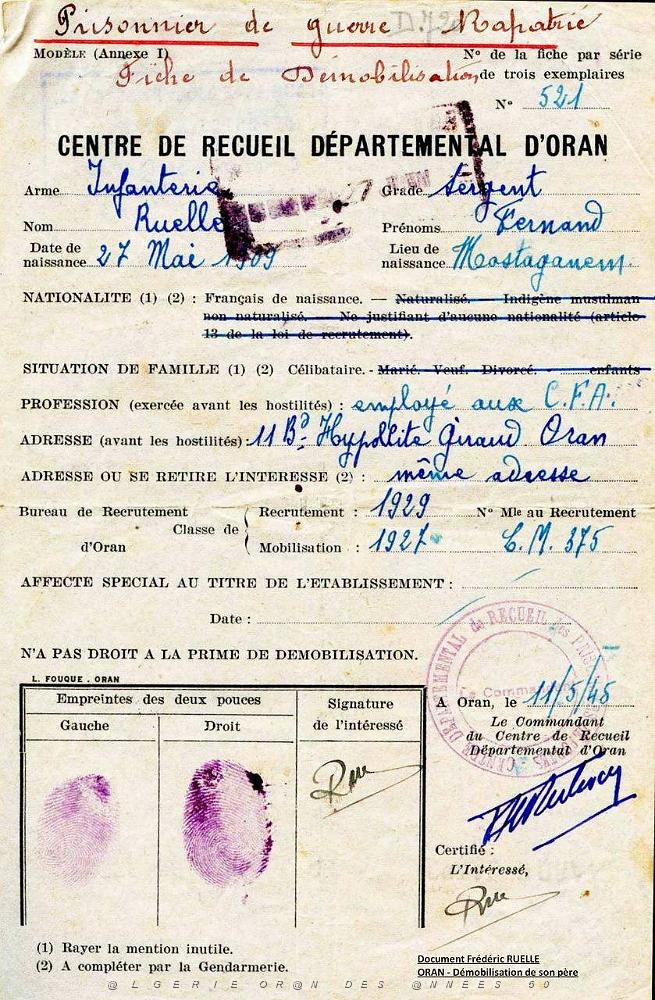 Prisonnier de guerre Rapatrié
MODÈLE (Annexe I) N° de la fiche par série
Fiche de Démobilisation de trois exemplaires
N° 521
CENTRE DE RECUEIL DÉPARTEMENTAL D'ORAN
Arme Infanterie Grade Sergent
Nom Ruelle Prénoms Fernand
Date de naissance 27 Mai 1909 Lieu de naissance Mostaganem
NATIONALITE (1) (2) : Français de naissance. — Naturalisé. — Indigène musulman
non naturalisé. — Ne justifiant d'aucune nationalité (article
13 de la loi de recrutement).
SITUATION DE FAMILLE (1) (2) Célibataire. - Marié. Veuf. Divorcé. - enfants
PROFESSION (exercée avant les hostilités) : employé aux C.F.A.
ADRESSE (avant les hostilités) : 11 Bd Hypollite Giraud Oran
ADRESSE OU SE RETIRE L'INTERESSE (2) : même adresse
Bureau de Recrutement Recrutement : 1929 N° Mle au Recrutement
Classe de
d'Oran Mobilisation : 1927 L.M. 375
AFFECTE SPECIAL AU TITRE DE L'ETABLISSEMENT :
Date :
N'A PAS DROIT A LA PRIME DE DEMOBILISATION.
L. FOUQUE . ORAN
Empreintes des deux pouces Signature
Gauche Droit de l'intéressé
Rue
A Oran, le 11/5/45
Le Commandant
du Centre de Recueil
Départemental d'Oran
CENTRE DÉPARTEMENTAL de RECUEIL des
Le Commandant
Certifié :
L'Intéressé,
Rue
(1) Rayer la mention inutile.
(2) A compléter par la Gendarmerie.
Document Frédéric RUELLE
ORAN - Démobilisation de son père
@LGERIE OR@N DES @NNEES 50